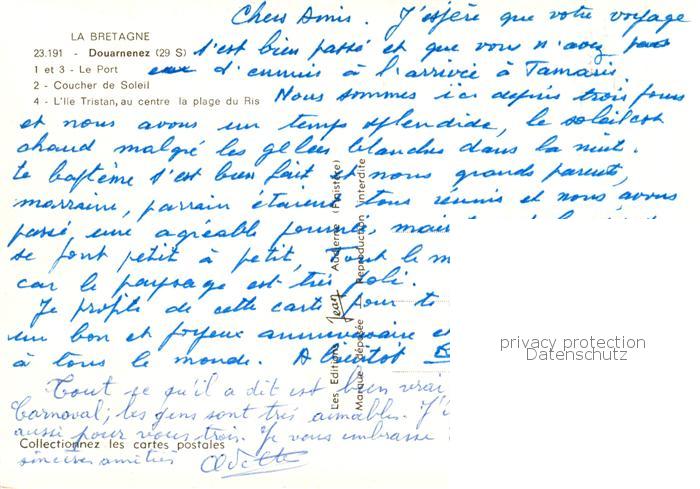 LA BRETAGNE
23.191 - Douarnenez (29 S)
1 et 3 - Le Port
2 - Coucher de Soleil
4 - L'Ile Tristan, au centre la plage du Ris
Chers Amis. J'espère que votre voyage
s'est bien passé et que vous n'avez pas
eu d'ennuis à l'arrivée à Tamaris.
Nous sommes ici depuis trois jours
et nous avons un temps splendide, le soleil est
chaud malgré les gelées blanches dans la nuit.
Le baptême s'est bien fait et nous grands parents,
marraine, parrain étaient tous réunis et nous avons
passé une agréable journée, mais
se font petit à petit, tout le m
car le paysage est très joli.
Je profite de cette carte pour te
un bon et joyeux anniversaire et
à tous le monde. A bientôt
Tout ce qu'il a dit est bien vrai
Carnaval; les gens sont très aimables. J'
aussi pour vous trois. Je vous embrasse
sincères amitiés Odette
Collectionnez les cartes postales
Les Editions Jean Audierne (Finistère)
Marque déposée - Reproduction interdite
privacy protection
Datenschutz